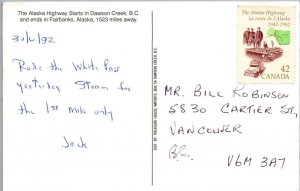 The Alaska Highway Starts in Dawson Creek, B.C.
and ends in Fairbanks, Alaska, 1523 miles away.
30/6/92
Rode the White Pass
yesterday Steam for
the 1st mile only
Jack
The Alaska Highway
La route de l'Alaska
1942-1992
42
CANADA
MR. BILL ROBINSON
5830 CARTIER ST,
VANCOUVER
B.C.
V6M 3A7